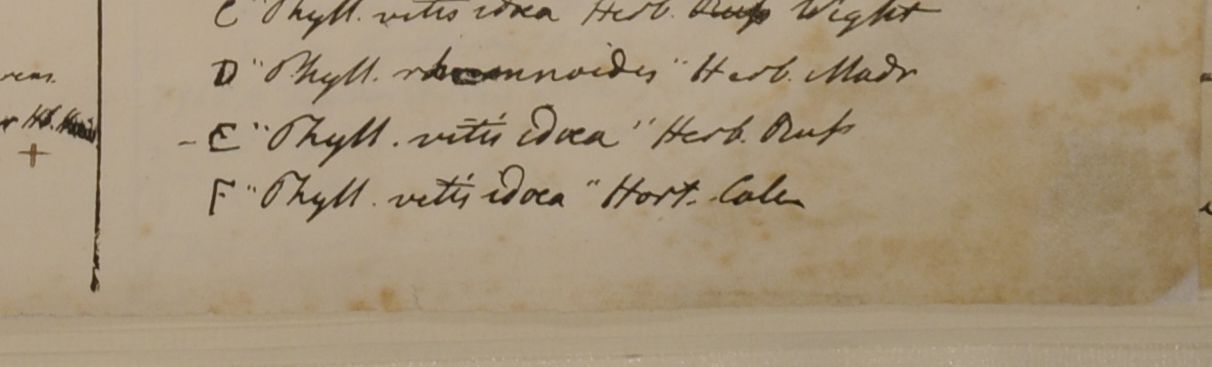 C "Phyll. vitis idæa Herb. Wight
D "Phyll. rhamnoides" Herb. Madr
- E "Phyll. vitis idæa" Herb. Russ
F "Phyll. vitis idæa" Hort. Calc
+